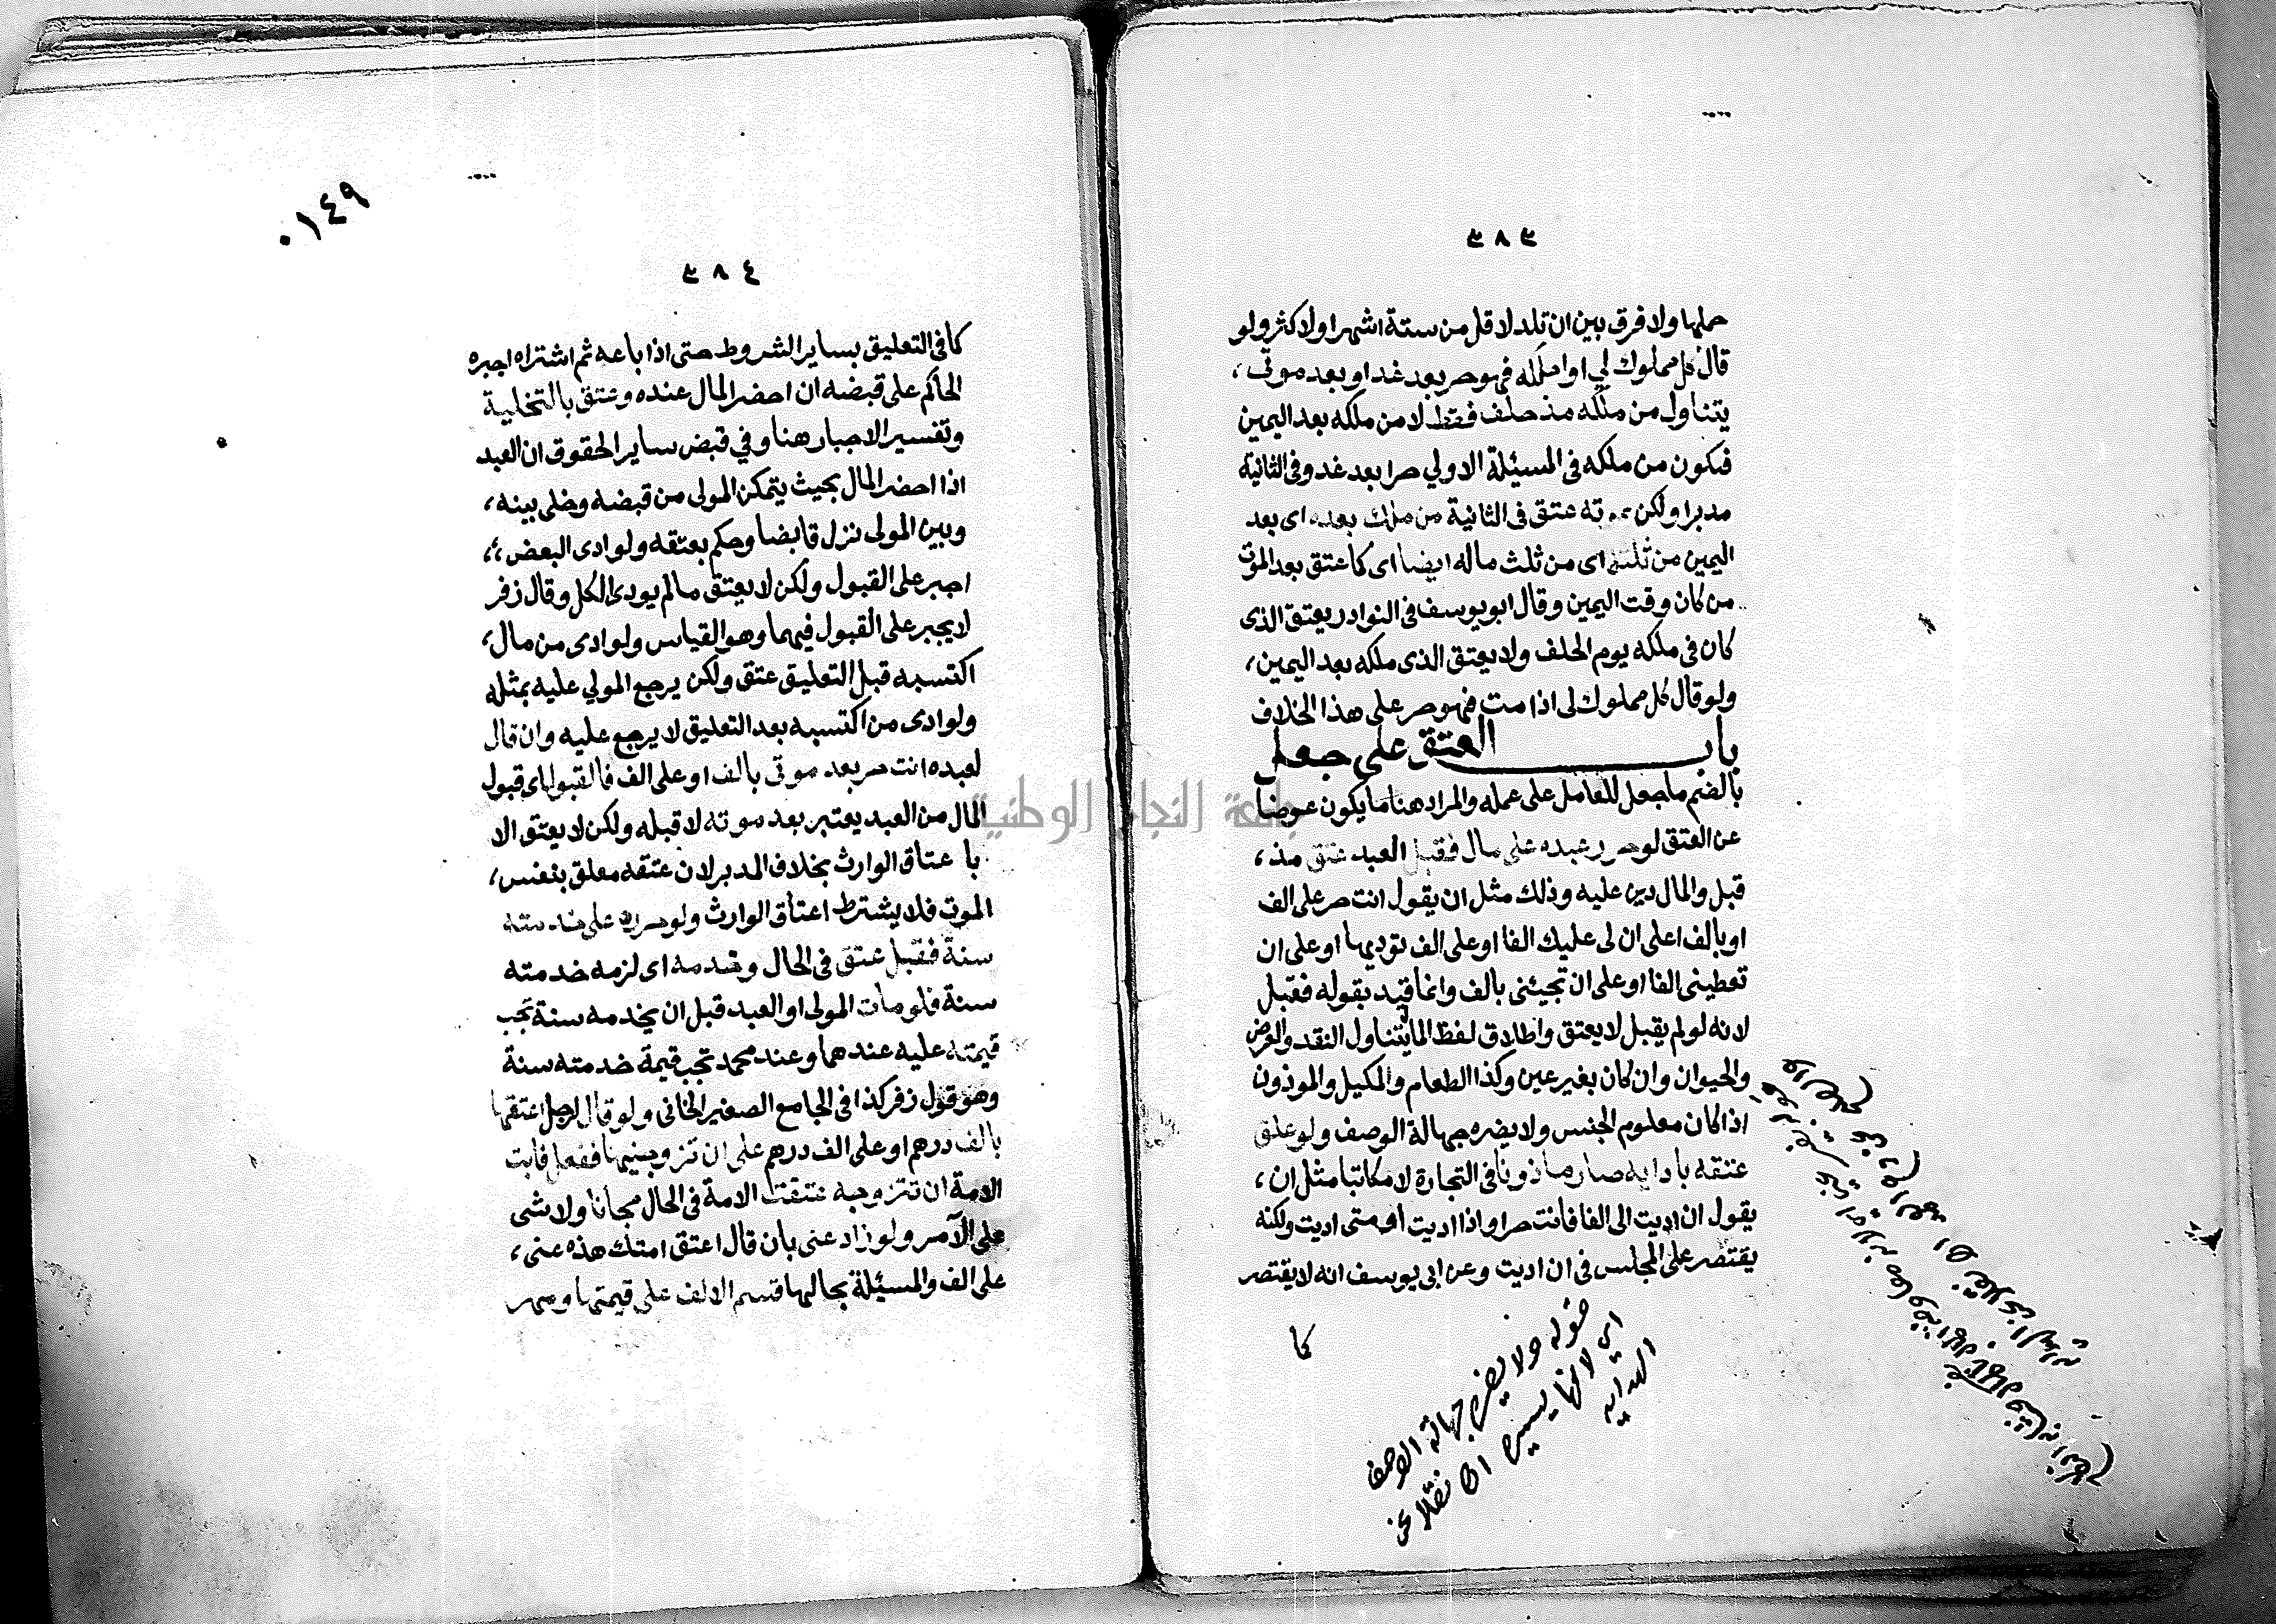 ٣٨٣
حملها ولا فرق بين ان تلد لاقل من ستة اشهر او لاكثر ولو
قال كل مملوك لي او املكه فهو حر بعد غد او بعد موتى،
يتناول من ملكه مذ حلف فقط لا من ملكه بعد اليمين
فيكون من ملكه فى المسئلة الاولي حرا بعد غد وفى الثانية
مدبرا ولكن بموته عتق فى الثانية من ملك بعده اى بعد
اليمين من ثلثه اى من ثلث ماله ايضا اى كما عتق بعد الموت
من كان وقت اليمين وقال ابو يوسف فى النوادر يعتق الذى
كان فى ملكه يوم الحلف ولا يعتق الذى ملكه بعد اليمين،
ولو قال كل مملوك لى اذا مت فهو حر على هذا الخلاف
باب العتق على جعل
بالضم ما جعل للعامل على عمله والمراد هنا ما يكون عوضا
عن العتق لو حرر عبده على مال فقبل العبد عتق مذ،
قبل والمال دين عليه وذلك مثل ان يقول انت حر على الف
او بالف اعلى ان لى عليك الفا او على الف توديها او على ان
تعطينى الفا او على ان تجيئنى بالف وانما قيد بقوله فقبل
لانه لو لم يقبل لا يعتق واطلاق لفظ المال يتناول النقد والعرض
والحيوان وان كان بغير عين وكذا الطعام والمكيل والموزون
اذا كان معلوم الجنس ولا يضره جهالة الوصف ولو علق
عتقه بادايه صار ماذونا فى التجارة لا مكاتبا مثل ان،
يقول ان اديت الى الفا فانت حر او اذا اديت او متى اديت ولكنه
يقتصر على المجلس فى ان اديت وعن ابى يوسف انه لا يقتصر
كما
قوله ولا يضره جهالة الوصف
اي لانها يسيرة اھ نقلا عن
الهدايه
٠١٤٩
٣٨٤
كما فى التعليق بساير الشروط حتى اذا باعه ثم اشتراه اجبره
الحاكم على قبضه ان احضر المال عنده وعتق بالتخلية
وتفسير الاجبار هنا وفي قبض ساير الحقوق ان العبد
اذا احضر المال بحيث يتمكن المولى من قبضه وخلى بينه،
وبين المولى نزل قابضا وحكم بعتقه ولو ادى البعض،
اجبر على القبول ولكن لا يعتق ما لم يودى الكل وقال زفر
لا يجبر على القبول فيهما وهو القياس ولو ادى من مال،
اكتسبه قبل التعليق عتق ولكن يرجع المولي عليه بمثله
ولو ادى من اكتسبه بعد التعليق لا يرجع عليه وان قال
لعبده انت حر بعد موتى بالف او على الف فالقبول اى قبول
المال من العبد يعتبر بعد موته لا قبله ولكن لا يعتق الا
باعتاق الوارث بخلاف المدبر لان عتقه معلق بنفس،
الموت فلا يشترط اعتاق الوارث ولو حرره على خدمته
سنة فقبل عتق فى الحال وخدمه اى لزمه خدمته
سنة فلو مات المولى او العبد قبل ان يخدمه سنة تجب
قيمته عليه عندهما وعند محمد تجب قيمة خدمته سنة
وهو قول زفر كذا فى الجامع الصغير الخانى ولو قال لرجل اعتقها
بالف درهم او على الف درهم على ان تزوجنيها ففعل فابت
الامة ان تتزوجه عتقت الامة فى الحال مجانا ولا شى
على الآمر ولو زاد عنى بان قال اعتق امتك هذه عنى،
على الف والمسئلة بحالها قسم الالف على قيمتها ومهر
جامعة النجاح الوطنية